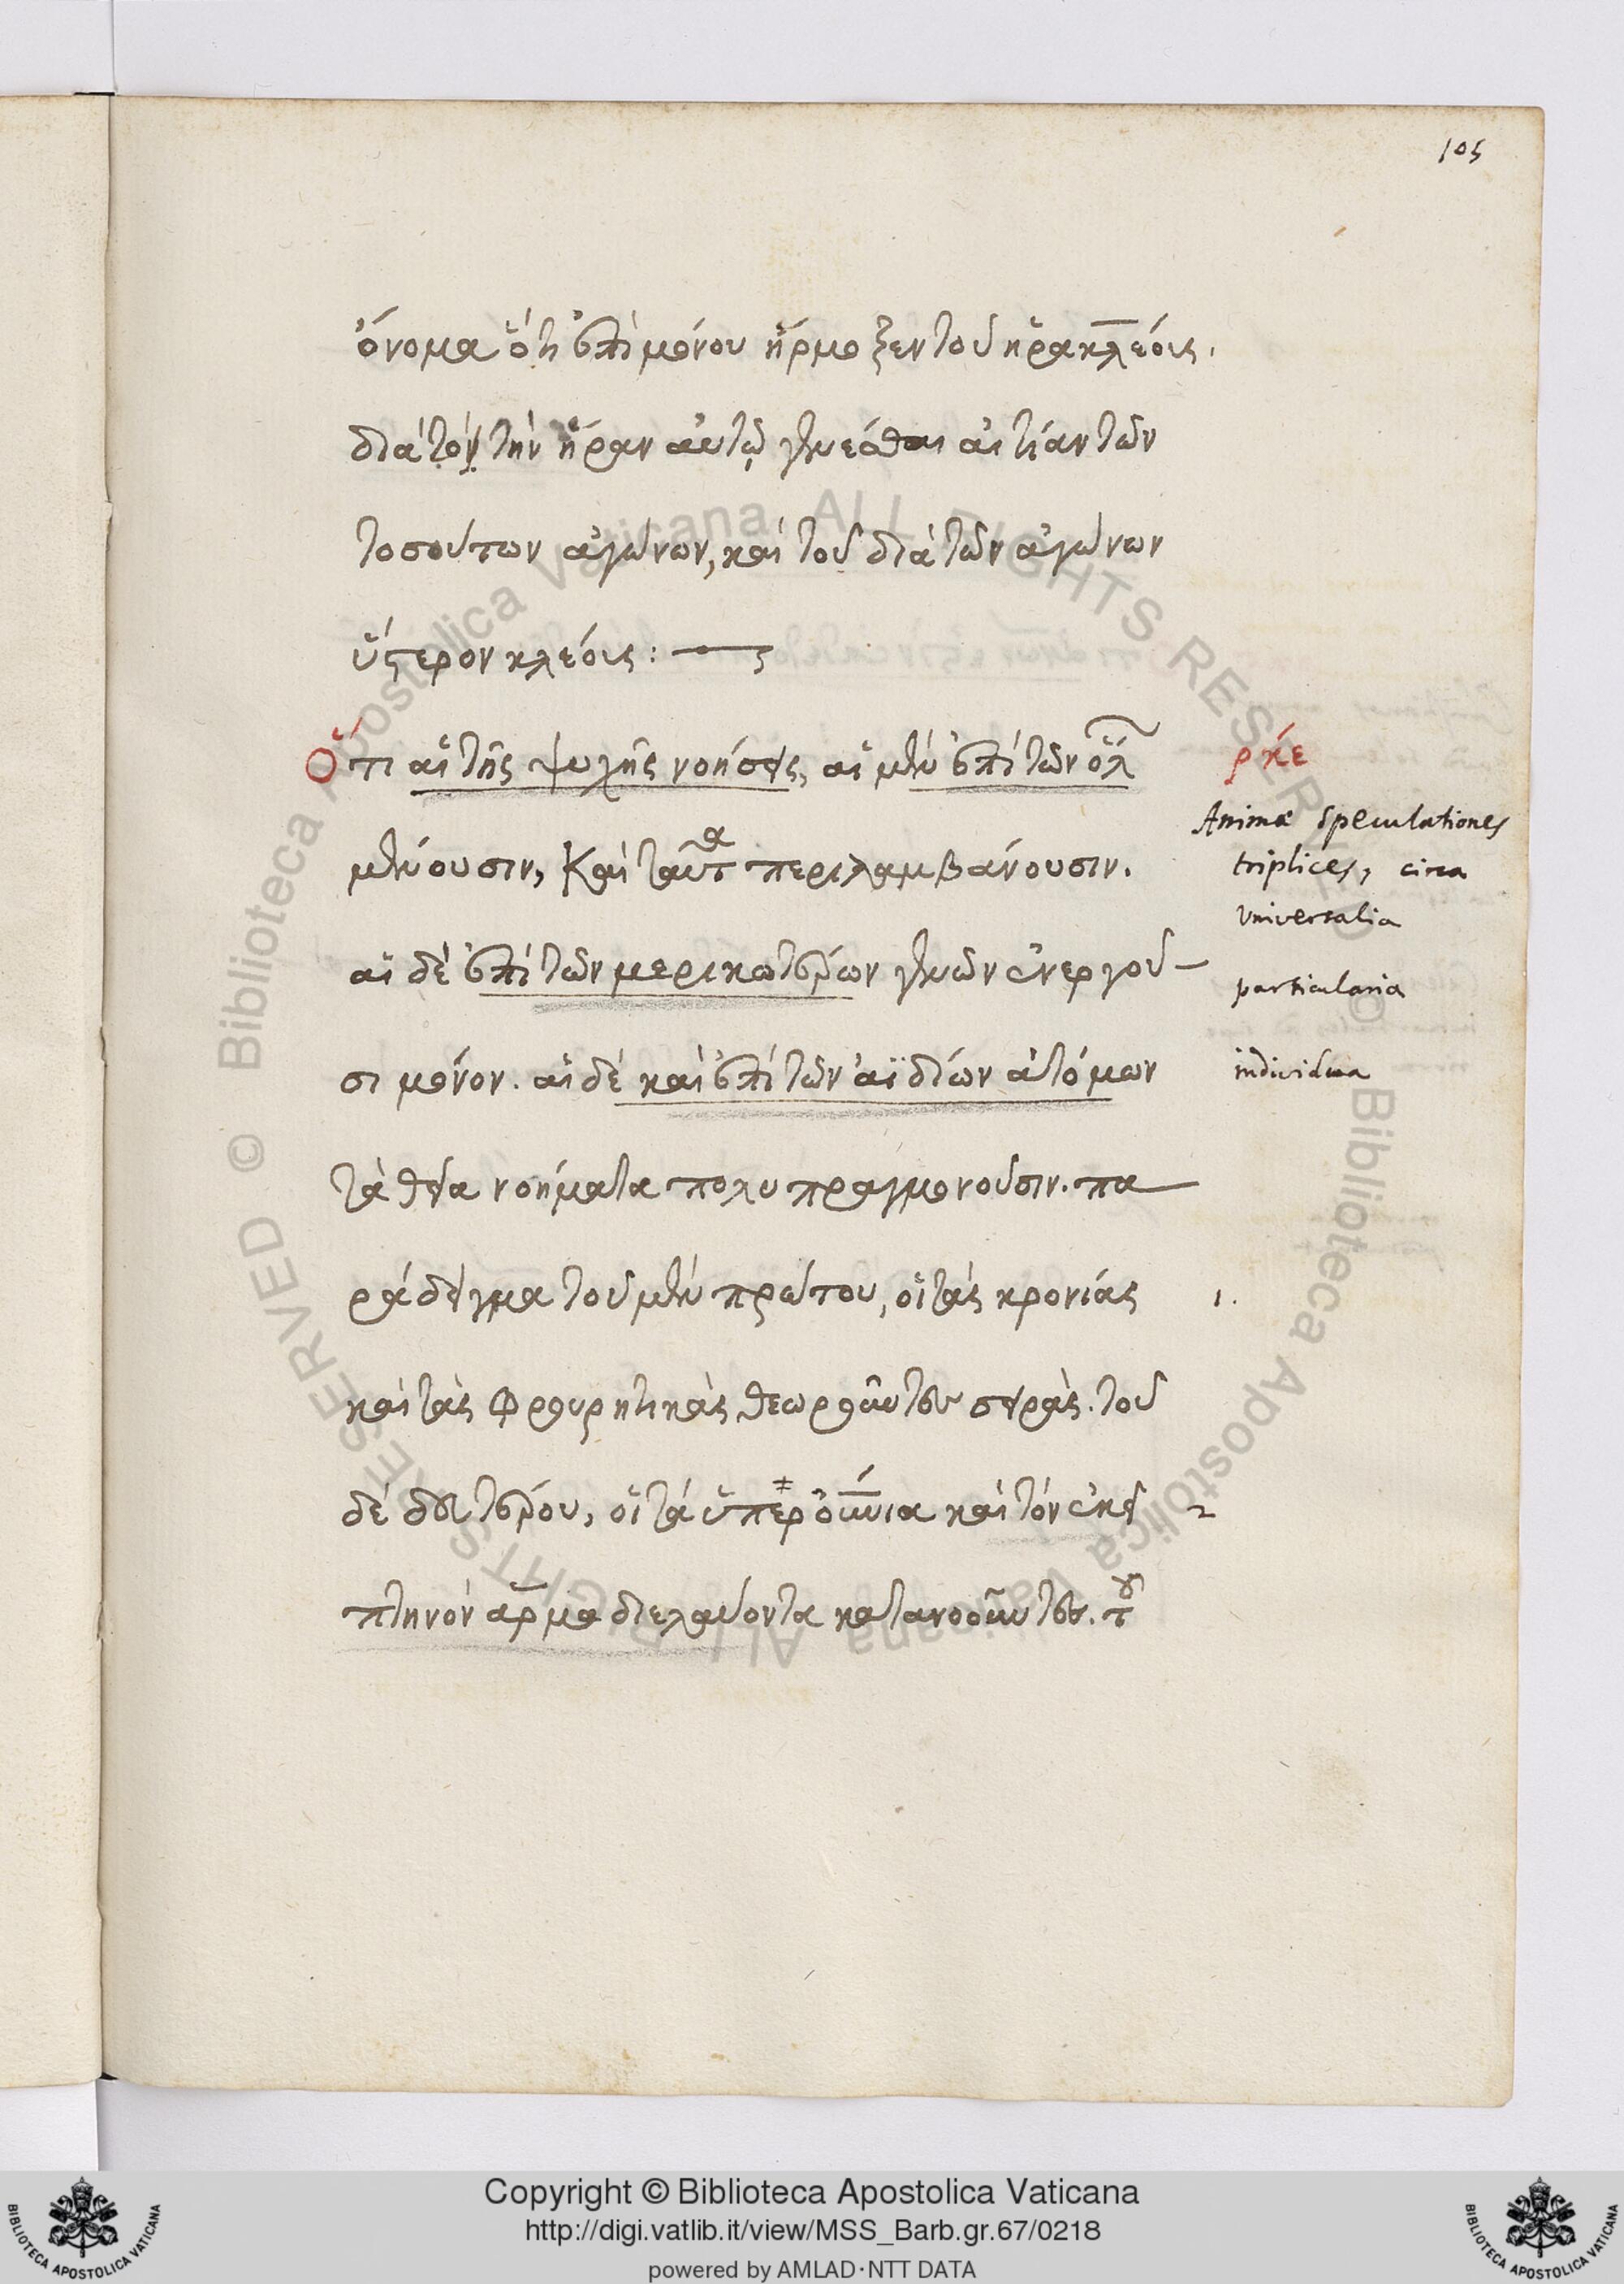 105
ὄνομα ὅτι ἐπὶ μόνου ἥρμοξεν τοῦ ἡρακλέους.
διὰ τὸν τὴν ἥραν αὐτῷ γενέσθαι αἰτίαν τῶν
τοσούτων ἀγώνων, καὶ τοῦ διὰ τῶν ἀγώνων
ὕστερον κλέους:
Ὅτι αἱ τῆς ψυχῆς νοήσεις, αἱ μὲν ἐπὶ τῶν ὅλ
ρκε
μένουσιν, καὶ ταῦτα περιλαμβάνουσιν.
Animæ speculationes
triplices, circa
universalia
αἱ δὲ ἐπὶ τῶν μερικωτέρων γενῶν ἐνεργοῦ-
particularia
σι μόνον. αἱ δὲ καὶ ἐπὶ τῶν ἀϊδίων ἀτόμων
individua
τὰ θεῖα νοήματα πολυπραγμονοῦσιν. πα
ράδειγμα τοῦ μὲν πρώτου, οἱ τὰς κρονίας
1.
καὶ τὰς φρουρητικὰς θεωροῦντες σειράς. τοῦ
δὲ δευτέρου, οἱ τὰ ὑπερουράνια καὶ τὸν ἐκεῖ
2
πτηνὸν ἅρμα διελαύνοντα κατανοοῦντες. τοῦ
Copyright © Biblioteca Apostolica Vaticana
http://digi.vatlib.it/view/MSS_Barb.gr.67/0218
powered by AMLAD·NTT DATA
BIBLIOTECA APOSTOLICA VATICANA
BIBLIOTECA APOSTOLICA VATICANA
© Biblioteca Apostolica Vaticana ALL RIGHTS RESERVED
© Biblioteca Apostolica Vaticana ALL RIGHTS RESERVED